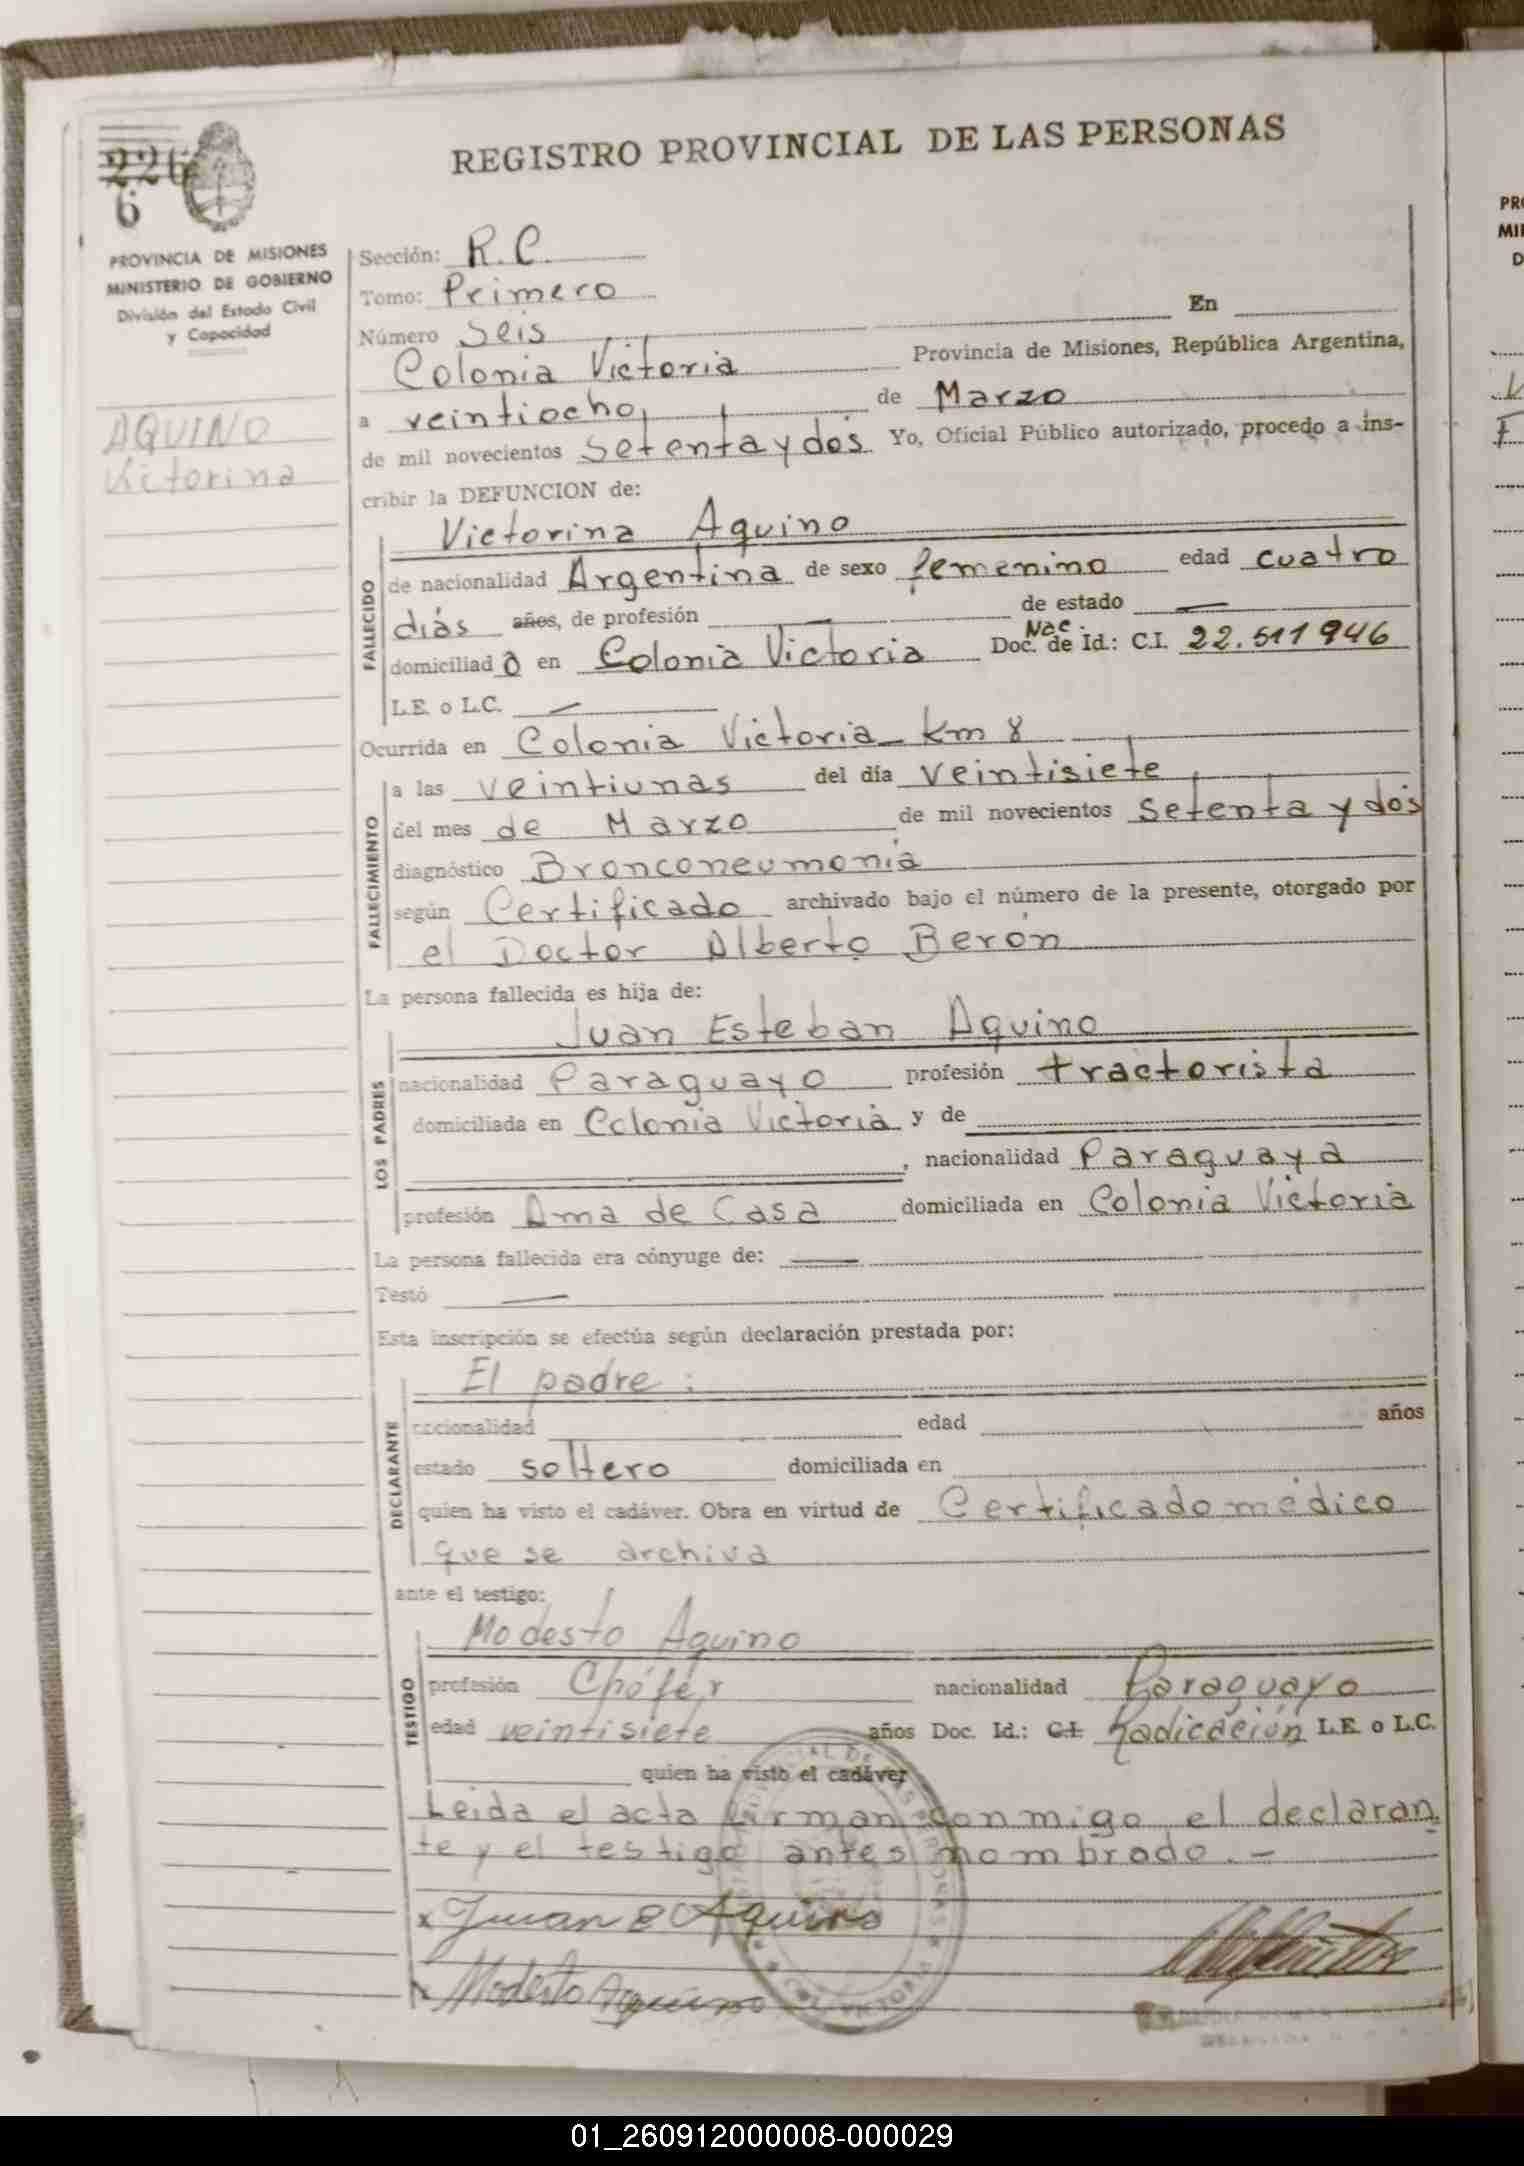 226
6
REGISTRO PROVINCIAL DE LAS PERSONAS
PROVINCIA DE MISIONES
MINISTERIO DE GOBIERNO
División del Estado Civil
y Capacidad
AQUINO
Victorina
Sección: R.C.
Tomo: Primero
Número Seis En
Colonia Victoria Provincia de Misiones, República Argentina,
a veintiocho de Marzo
de mil novecientos setenta y dos Yo, Oficial Público autorizado, procedo a ins-
cribir la DEFUNCION de:
Victorina Aquino
FALLECIDO
de nacionalidad Argentina de sexo femenino edad cuatro
días años, de profesión — de estado —
Nac
domiciliad a en Colonia Victoria Doc. de Id.: C.I. 22.511946
L.E. o L.C. —
Ocurrida en Colonia Victoria - km 8
FALLECIMIENTO
a las veintiunas del día veintisiete
del mes de Marzo de mil novecientos setenta y dos
diagnóstico Bronconeumonia
según Certificado archivado bajo el número de la presente, otorgado por
el Doctor Alberto Berón
La persona fallecida es hija de:
Juan Esteban Aquino
LOS PADRES
nacionalidad Paraguayo profesión tractorista
domiciliada en Colonia Victoria y de
, nacionalidad Paraguaya
profesión Ama de Casa domiciliada en Colonia Victoria
La persona fallecida era cónyuge de: —
Testó —
Esta inscripción se efectúa según declaración prestada por:
El padre:
DECLARANTE
nacionalidad edad años
estado soltero domiciliada en
quien ha visto el cadáver. Obra en virtud de Certificado médico
que se archiva
ante el testigo:
Modesto Aquino
TESTIGO
profesión Chófer nacionalidad Paraguayo
edad veintisiete años Doc. Id.: C.I. Radicación L.E. o L.C.
quien ha visto el cadáver
Leida el acta firman conmigo el declaran
te y el testigo antes nombrado.-
x Juan E Aquino
x Modesto Aquino
COL. VICTORIA
01_260912000008-000029